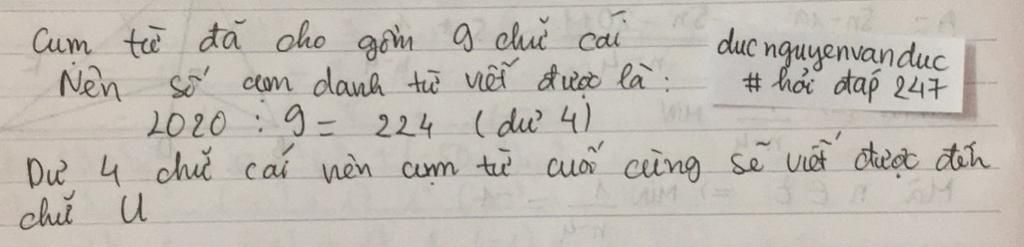 Cụm từ đã cho gồm 9 chữ cái
Nên số cụm danh từ viết được là:
2020 : 9 = 224 (dư 4)
Dư 4 chữ cái nên cụm từ cuối cùng sẽ viết được đến
chữ U
duc nguyenvanduc
# hỏi đáp 247